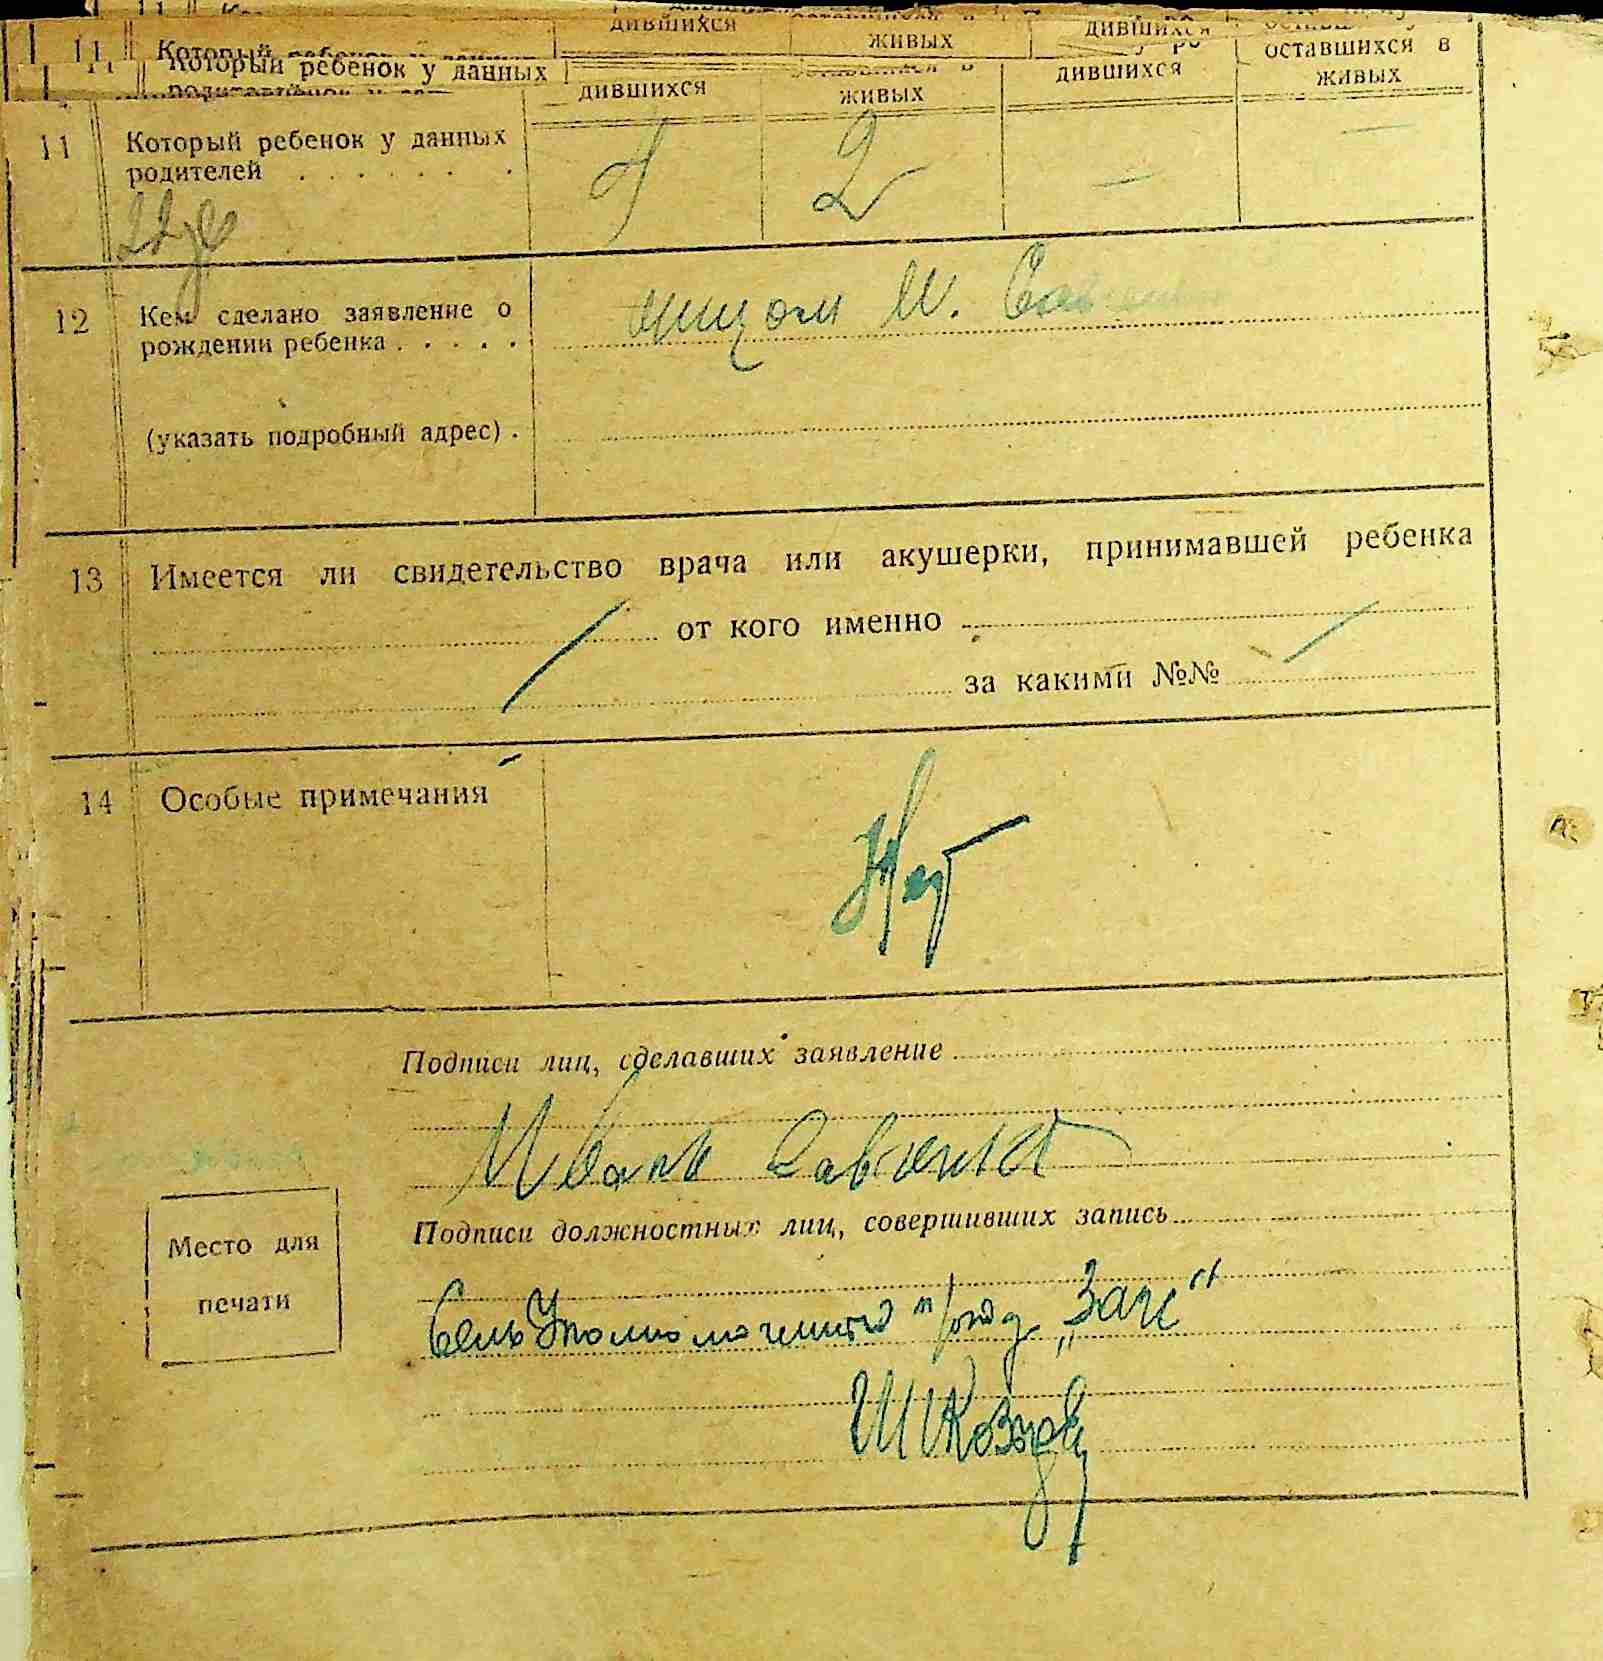 11 Который
дившихся живых дившихся оставшихся в
11 Который ребенок у данных дившихся живых дившихся живых
11 Который ребенок у данных
родителей . . . . . .
2
12 Кем сделано заявление о
рождении ребенка . . . . .
(указать подробный адрес) .
13 Имеется ли свидетельство врача или акушерки, принимавшей ребенка
от кого именно
за какими №№
14 Особые примечания
Нет
Подписи лиц, сделавших заявление
Иван Савченко
Подписи должностных лиц, совершивших запись
Место для
печати
Сель Уполномоченный "Загс"